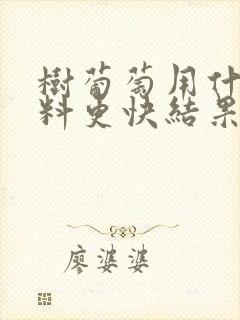 樹葡萄用什
料更快結果
廖婆婆